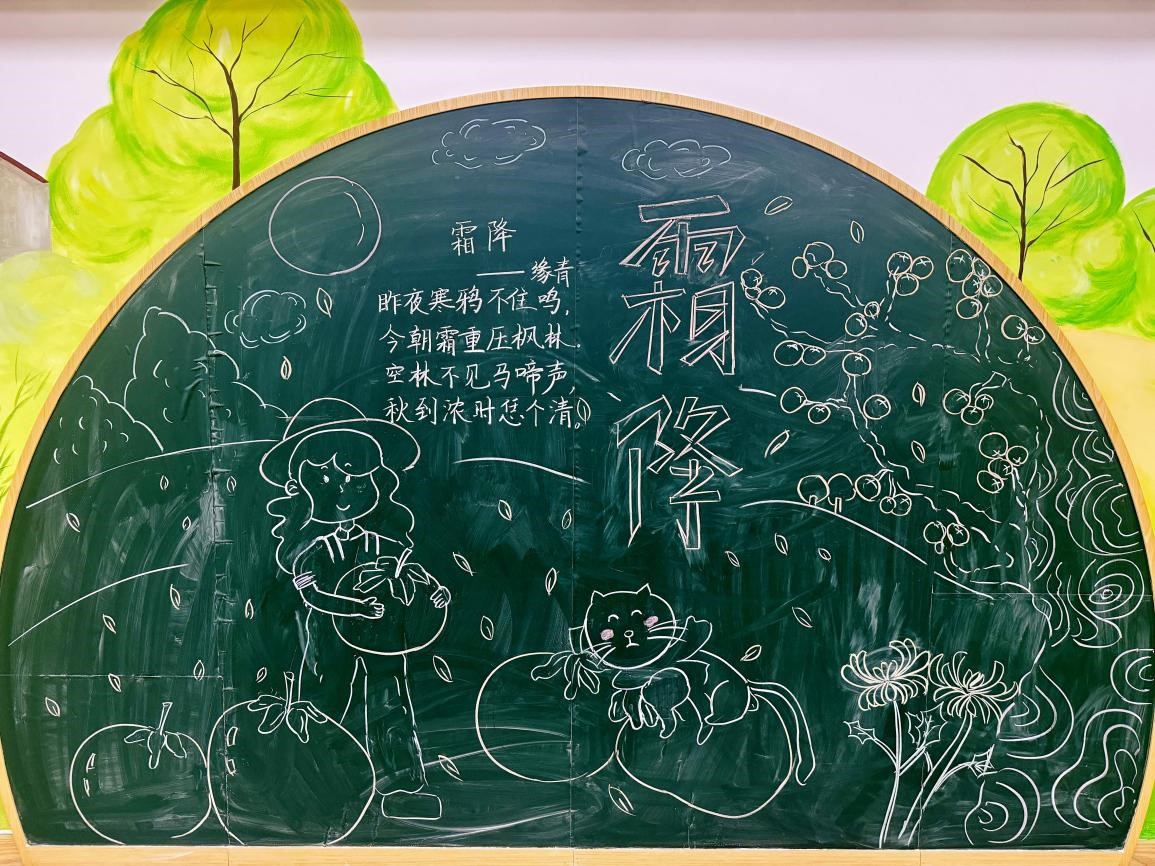 霜降
——缘青
昨夜寒鸦不住鸣,
今朝霜重压枫林.
空林不见马啼声,
秋到浓时怎个清。
霜降